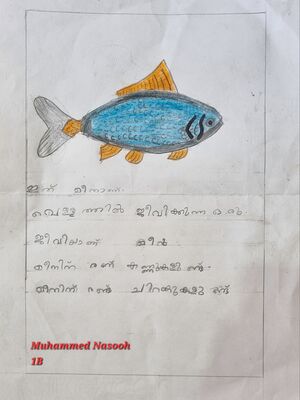 ഇത് മീനാണ്.
വെള്ളത്തിൽ ജീവിക്കുന്ന ഒരു
ജീവിയാണ് മീൻ.
മീനിന് രണ്ട് കണ്ണുകളുണ്ട്.
മീനിന് രണ്ട് ചിറകുകളു ണ്ട്
Muhammed Nasooh
1B